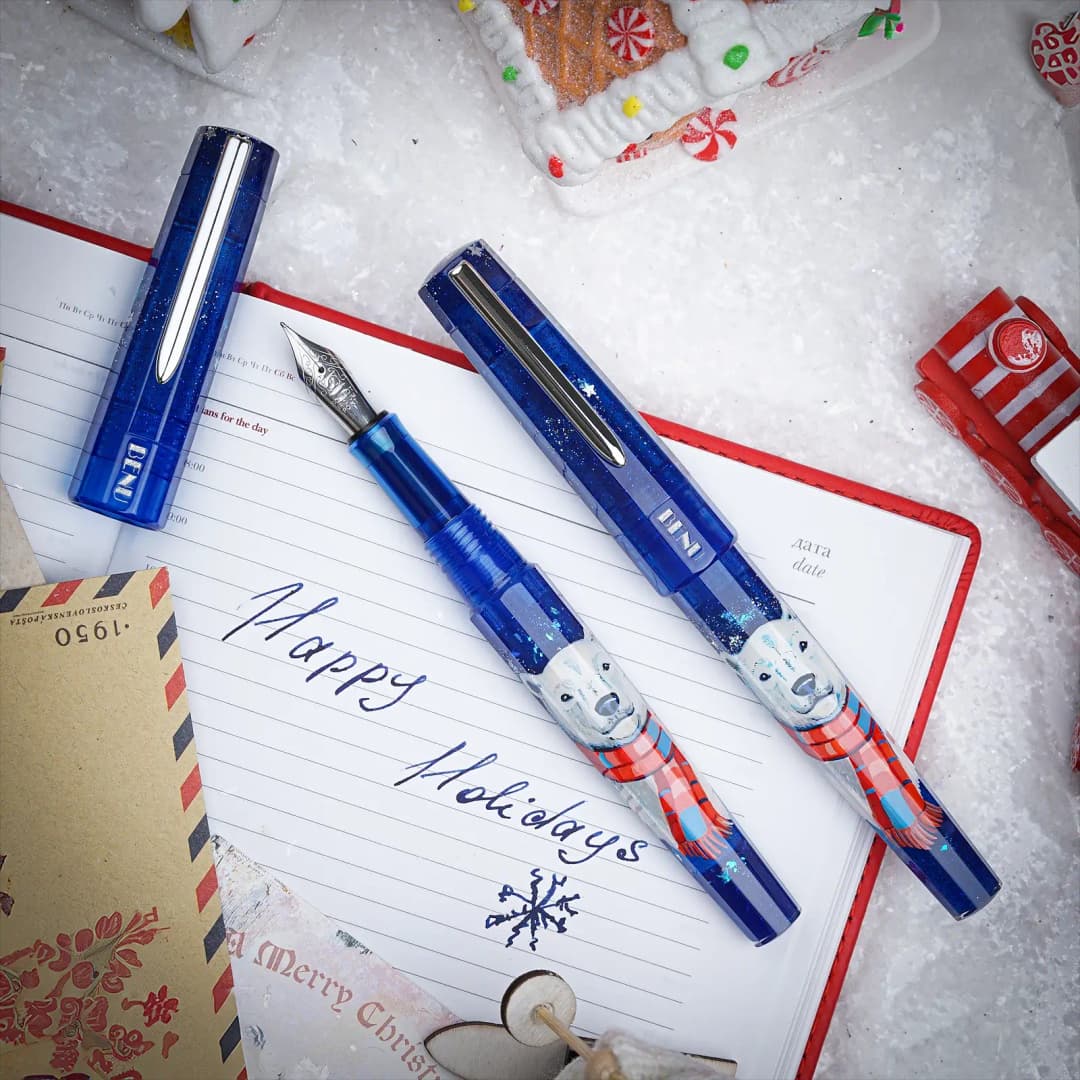 Пн Вт Ср Чт Пт С
Вт Ср Чт Пт Сб Вс
lans for the day
8:00
9:00
BENU
BENU
дата
date
Happy
Holidays
ČESKOSLOVENSKÁ POŠTA
·1950
A Merry Christ